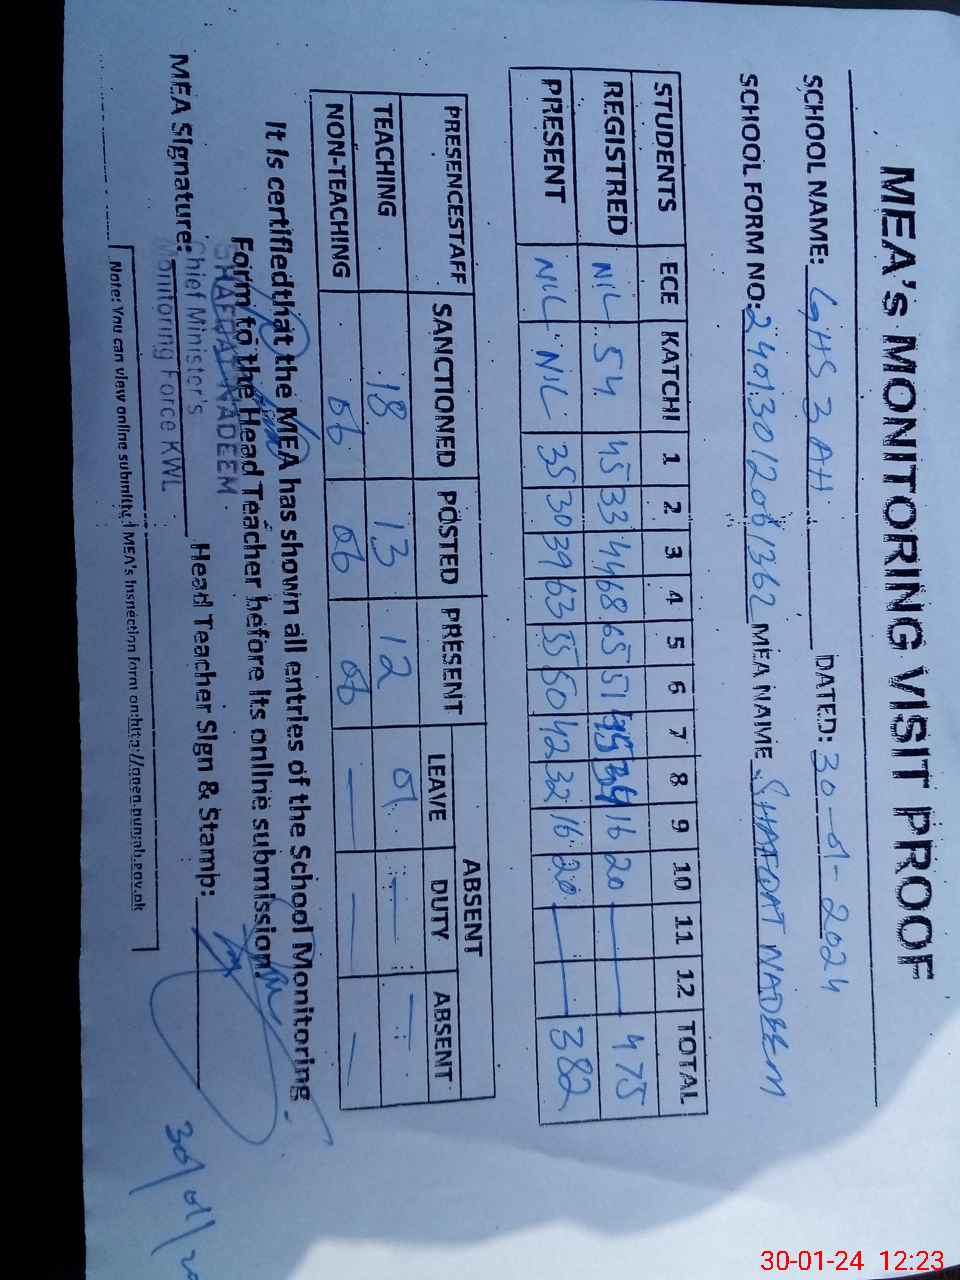 MEA's MONITORING VISIT PROOF
SCHOOL NAME: GHS 3 AH DATED: 30-01-2024
SCHOOL FORM NO: 24013012061362 MEA NAME SHAFQAT NADEEM
STUDENTS ECE KATCHI 1 2 3 4 5 6 7 8 9 10 11 12 TOTAL
REGISTRED NIL 54 45 33 44 68 65 51 45 34 16 20 — — 475
PRESENT NIL NIL 35 30 39 63 55 50 42 32 16 20 — — 382
ABSENT
PRESENCESTAFF SANCTIONED POSTED PRESENT LEAVE DUTY ABSENT
TEACHING 18 13 12 01 — —
NON-TEACHING 06 06 06 — — —
It is certifiedthat the MEA has shown all entries of the School Monitoring
Form to the Head Teacher before its online submission.
SHAFQAT NADEEM
MEA Signature: Head Teacher Sign & Stamp:
Chief Minister's
Monitoring Force KWL
Note: You can view online submitted MEA's Inspection form on:http://open.punjab.gov.pk
30/01/
30-01-24 12:23